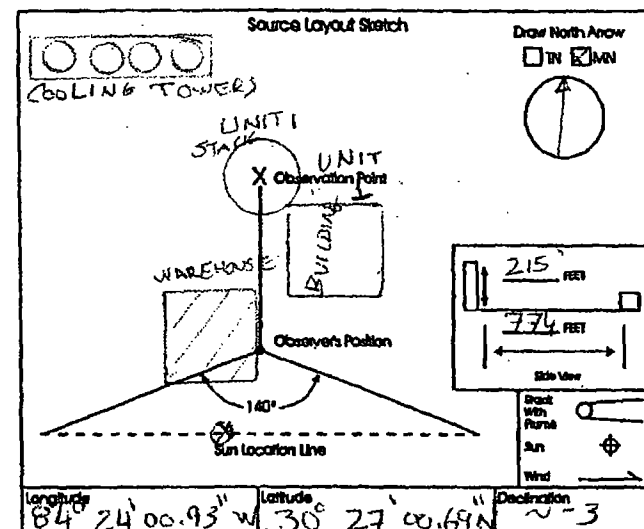 Source Layout Sketch
Draw North Arrow
TN MN
COOLING TOWERS
UNIT 1
STACK
UNIT
1
X Observation Point
BUILDING
WAREHOUSE
215' FEET
774 FEET
Side View
Observer's Position
140°
Sun Location Line
Stack
With
Plume
Sun
Wind
Longitude
84° 24' 00.93" W
Latitude
30° 27' 00.69" N
Declination
~ -3